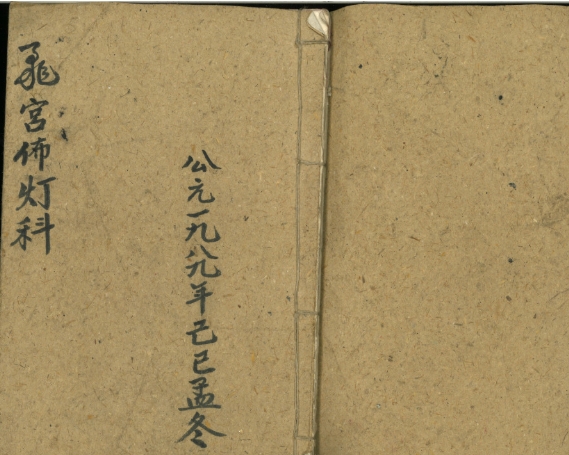 公元一九八九年己巳孟冬
宮佈灯科